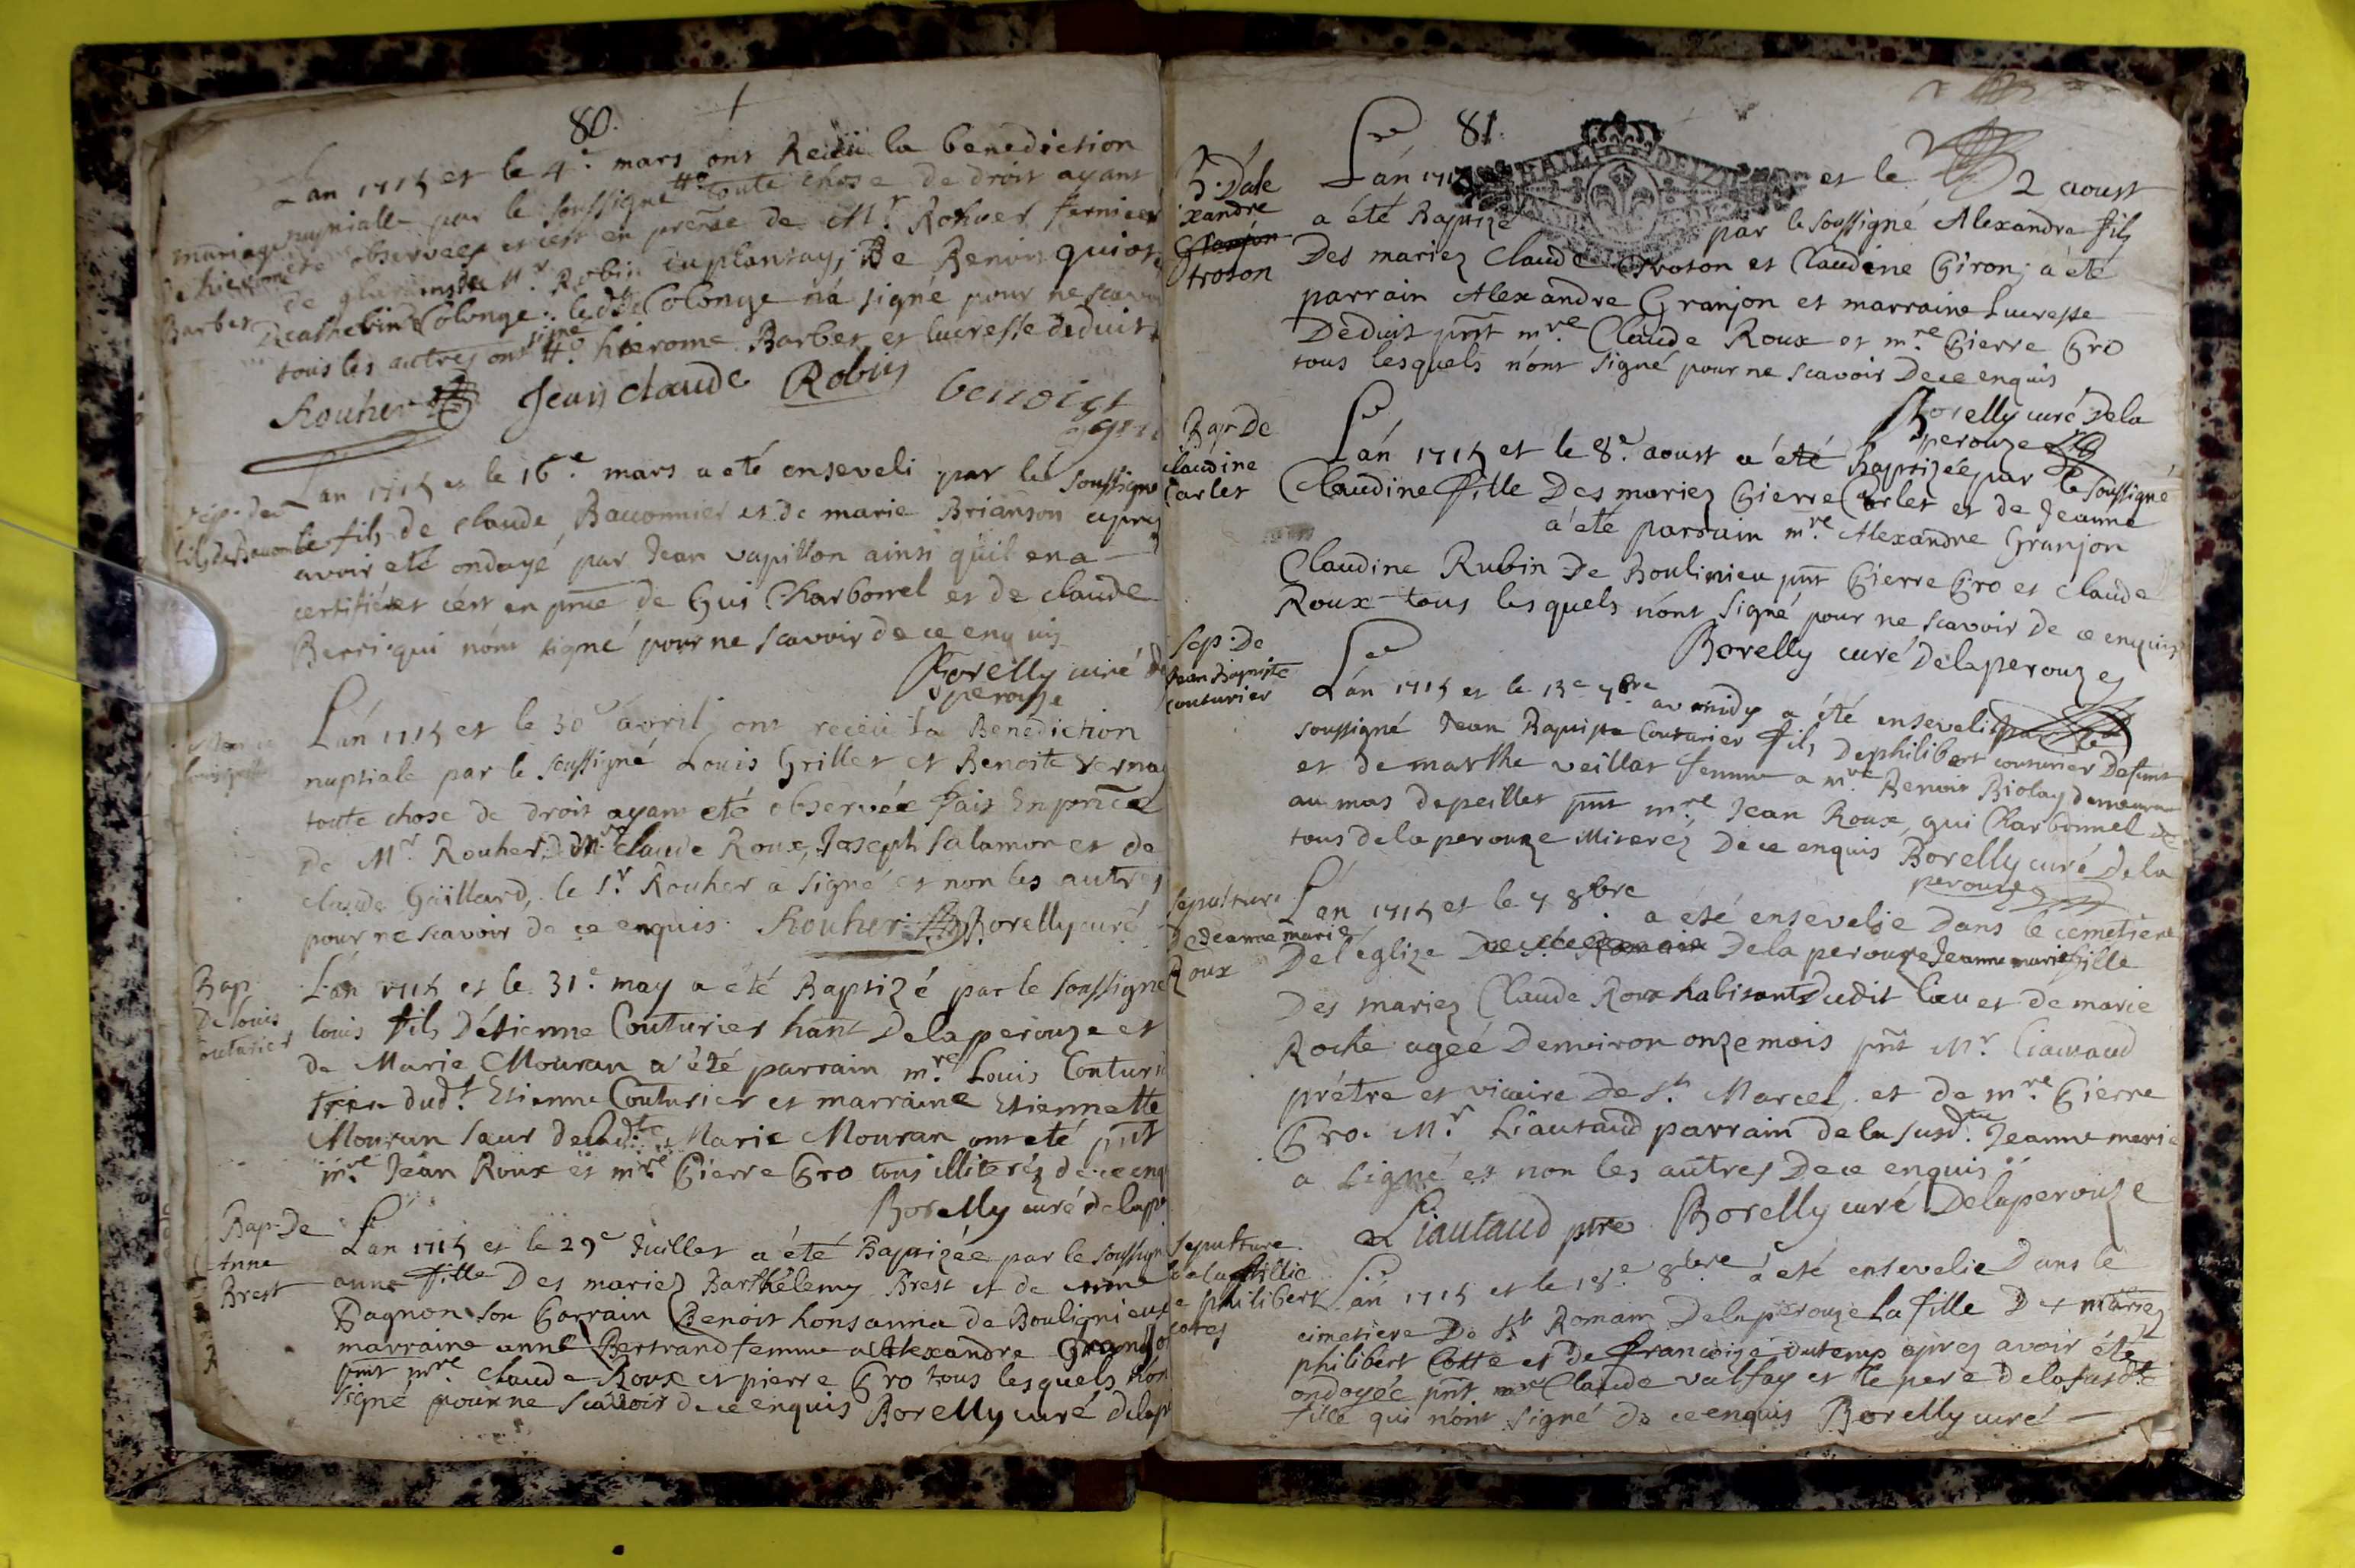 80.
Lan 1715 et le 4e mars ont Receü la benediction
nuptialle par le soussigné # toute chose de droit ayant
mariage
de hierome
Barbet
été observées et c'est en pñce de Mr Rohuer fermier
de glareins de Mr Robin du plantay, De Benoit quiot
De Catherine Colonge. led. Colonge n'a signé pour ne scavoir
tous les autres ont signé # hierome Barbet et lucresse deduit
Rouher Jean claude Robin benoist
Sep. du
fils de Bauonnier
Lan 1715 et le 16e mars a été enseveli par le soussigné
le fils de claude Bauonnier et de marie Brianson apres
avoir eté ondoyé par Jean vapillon ainsi qu'il en a
certifié et c'est en pñce de Gui Charbonnel et de claude
Berri qui n'ont signé pour ne scavoir de ce enquis
Borelly curé de
perouze
L'an 1715 et le 30e avril ont receü la Benediction
nuptiale par le soussigné Louis Grillet et Benoite vernay
toute chose de droit ayant eté observée fait En pñce
De Mr Rouher, De Mre claude Roux, Joseph Salamon et de
claude Gaillard, le Sr Rouher a signé et non les autres
pour ne scavoir de ce enquis. Rouher Borelly curé
Bap.
De louis
couturier
L'an 1715 et le 31e may a été Baptizé par le soussigné
louis fils D'étienne Couturier hant Delaperouze et
de Marie Mouran a'été parrain mre Louis Couturier
frère dud.t Etienne Couturier et marraine Etiennette
Mouran Sœur deladte Marie Mouran ont eté pñt
mre Jean Roux et mre Pierre Gro tous illiteréz de ce enq
Borelly curé de lape
Bap. De
Anne
Brest
L'an 1715 et le 29e Juillet a été Baptizée par le soussigné
anne fille Des mariez Barthélemy Brest et de anne
Pagnon son Parrain Benoit honsanna de Bouligneux
marraine anne Bertrand femme a Alexandre Granjon
pñt mre claude Roux et pierre Gro tous lesquels n'ont
signé pour ne scavoir de ce enquis Borelly curé delap
81.
B. D'ale
xandre
Granjon
troton
L'an 1715 et le 2 aoust
a été Baptizé par le soussigné Alexandre fils
Des mariez Claude troton et Claudine Giron; a été
parrain Alexandre Granjon et marraine Lucresse
Deduit pñt mre Claude Roux et mre Pierre Gro
tous lesquels n'ont signé pour ne scavoir De ce enquis
Borelly curé Dela
perouze
Bap De
claudine
Carlet
L'an 1715 et le 8e aoust a été Baptizée par le soussigné
Claudine fille Des mariez Pierre Carlet et de Jeanne
a été parrain mre Alexandre Granjon
Claudine Rubin De Boulinieu pñt Pierre Gro et Claude
Roux tous lesquels n'ont signé pour ne scavoir De ce enquis
Borelly curé Delaperouze
Sep. De
Jean Baptiste
couturier
L'an 1715 et le 13e 7bre avant midy a été enseveli par le
soussigné Jean Baptiste Couturier fils De philibert couturier Defunt
et de marthe veillat femme a mre Benoit Biolay demeurant
au mas de peillet pñt mre Jean Roux, gui Charbonnel
tous dela perouze Miterez De ce enquis Borelly curé De la
perouze
Sepulture
De Jeanne marie
Roux
L'an 1715 et le 7 8bre a été ensevelie Dans le cemetiere
De l'églize De St Romain Dela perouze Jeanne marie fille
Des mariez Claude Roux habitant Dudit lieu et de marie
Roche agée Denviron onze mois pñt Mr Liautaud
prêtre et vicaire De St. Marcel, et de mre Pierre
Gro. Mr Liautaud parrain de la susdte Jeanne marie
a signé et non les autres De ce enquis
Liautaud ptre Borelly curé Delaperouze
Sepulture
de la fillie
de philibert
cotte
L'an 1715 et le 18e 8bre a eté ensevelie Dans le
cimetiere De St Romain Delaperouze La fille Des mariez
philibert Cotte et de francoize dutemp apres avoir été
ondoyée pñt mre Claude valfay et le pere dela susdte
fille qui n'ont signé De ce enquis Borelly curé